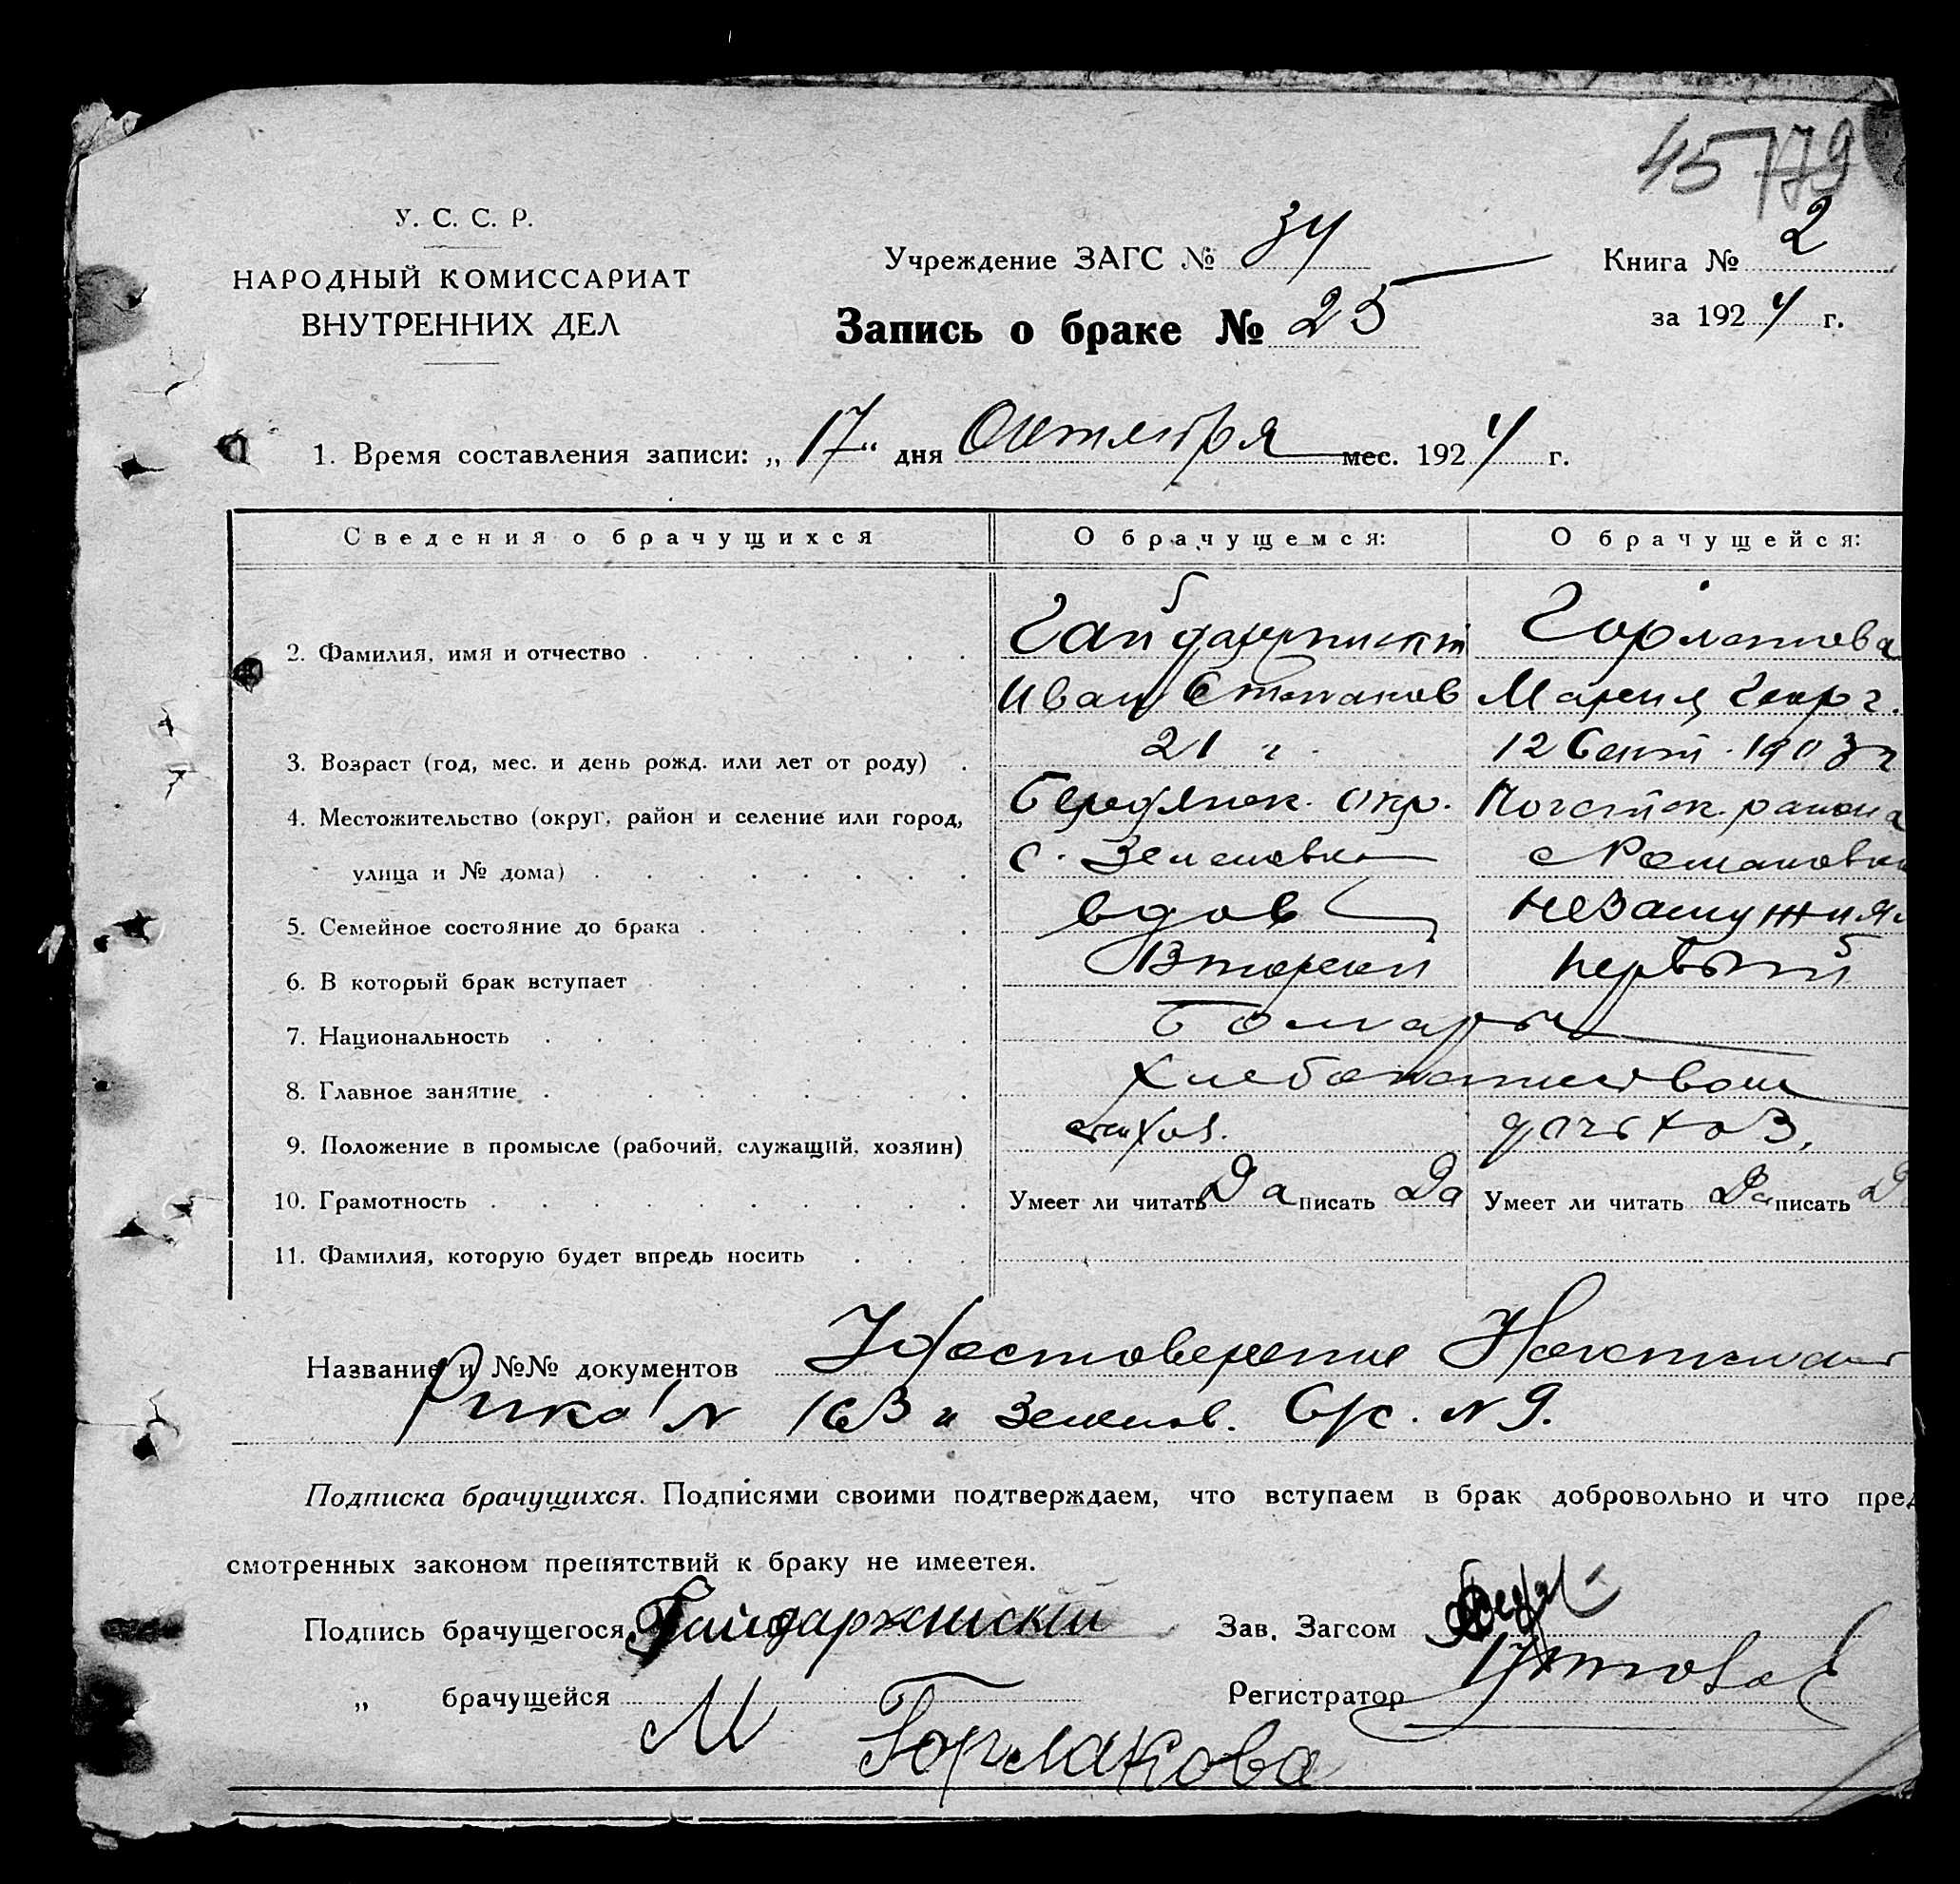 45 179
У. С. С. Р.
НАРОДНЫЙ КОМИССАРИАТ
ВНУТРЕННИХ ДЕЛ
Учреждение ЗАГС № 34
Запись о браке № 25
Книга № 2
за 1924 г.
1. Время составления записи: „17“ дня Октября мес. 1924 г.
Сведения о брачущихся О брачущемся: О брачущейся:
2. Фамилия, имя и отчество Гайдаржийский Горлакова
Иван Степанов Мария Георг.
3. Возраст (год, мес. и день рожд. или лет от роду) 21 г. 12 Сент. 1903 г
4. Местожительство (округ, район и селение или город, Бердянск. окр. района
улица и № дома) с. Зеленовка с Романовки
5. Семейное состояние до брака вдов незамужняя
6. В который брак вступает Второй первый
7. Национальность Болгары
8. Главное занятие Хлебопашеством
9. Положение в промысле (рабочий, служащий, хозяин) дочь хоз.
10. Грамотность Умеет ли читать Да писать Да Умеет ли читать Да писать Да
11. Фамилия, которую будет впредь носить
Название и №№ документов Удостоверение
Рика № 163 и Зеленов. С/с. № 9.
Подписка брачущихся. Подписями своими подтверждаем, что вступаем в брак добровольно и что пред
смотренных законом препятствий к браку не имеетея.
Подпись брачущегося Гайдаржийский Зав. Загсом
„ брачущейся М Горлакова Регистратор